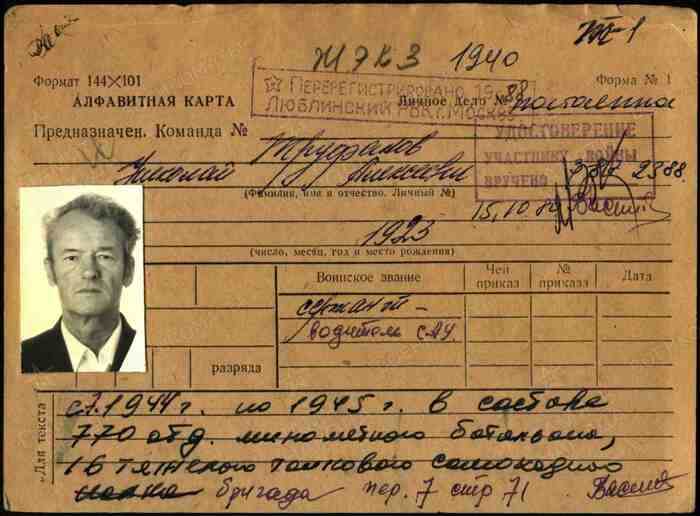 ЖЭК 3 1940
Формат 144×101
Форма № 1
ПЕРЕРЕГИСТРИРОВАНО 1988
ЛЮБЛИНСКИЙ РВК г. МОСКВЫ
АЛФАВИТНАЯ КАРТА
Личное дело №
Предназначен. Команда №
УДОСТОВЕРЕНИЕ
УЧАСТНИКУ ВОЙНЫ
ВРУЧЕНО
Труфанов
Николай
(Фамилия, имя и отчество. Личный №)
15.10.80
1923
(число, месяц, год и место рождения)
Воинское звание
Чей приказ
№ приказа
Дата
сержант –
водитель САУ.
разряда
«Для текста»
с 1.1944 г. по 1945 г. в составе
770 отд. минометного батальона,
16 тяжелого танкового самоходного
полка бригада пер. 7 стр 71